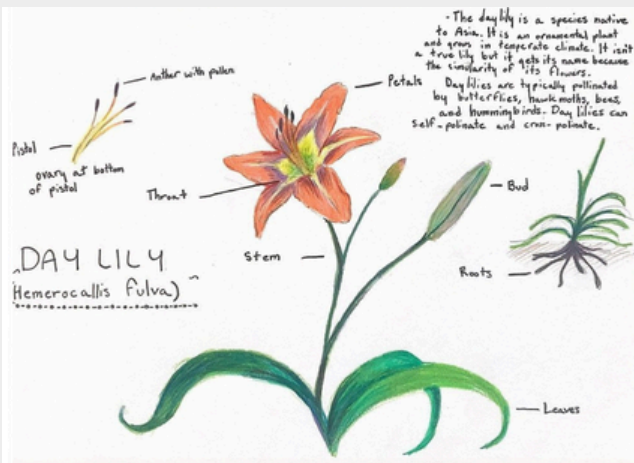 - The day lily is a species native
to Asia. It is an ornamental plant
and grows in temperate climate. It isn't
a true lily but it gets its name because
the similarity of its flowers.
Day lilies are typically pollinated
by butterflies, hawkmoths, bees,
and hummingbirds. Day lilies can
self-polinate and cross-polinate.
Anther with pollen
Petals
Pistol
ovary at bottom
of pistol
Throat
Bud
Stem
DAY LILY
(Hemerocallis fulva)
Roots
Leaves